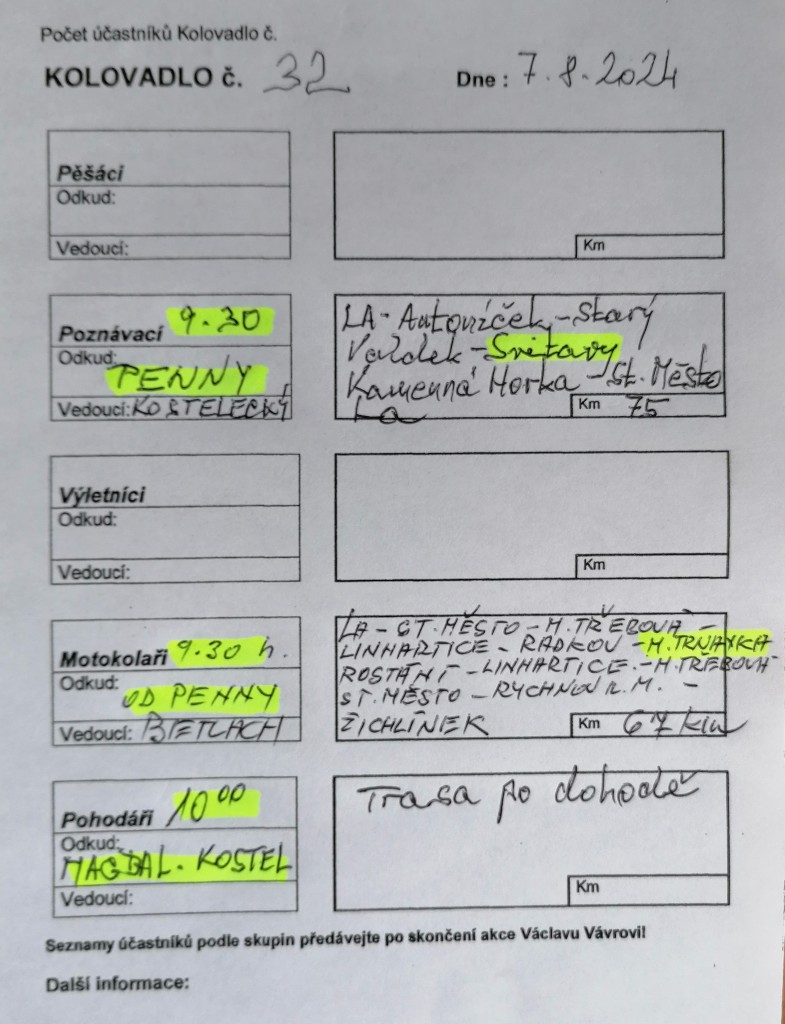 Počet účastníků Kolovadlo č.
KOLOVADLO č. 32 Dne : 7.8.2024
Pěšáci
Odkud:
Vedoucí:
Km
Poznávací 9.30
Odkud: PENNY
Vedoucí: KOSTELECKÝ
LA - Antoníček - Starý
Valdek - Svitavy
Kamenná Horka - St. Město
La
Km 75
Výletníci
Odkud:
Vedoucí:
Km
Motokolaři 9.30 h.
Odkud: OD PENNY
Vedoucí: BIETLACH
LA - ST. MĚSTO - M. TŘEBOVÁ -
LINHARTICE - RADKOV - M. TRNÁVKA
ROSTÁNÍ - LINHARTICE - M. TŘEBOVÁ -
ST. MĚSTO - RYCHNOV n. M. -
ŽICHLÍNEK
Km 67 km
Pohodáři 10⁰⁰
Odkud:
MAGDAL. KOSTEL
Vedoucí:
Trasa po dohodě
Km
Seznamy účastníků podle skupin předávejte po skončení akce Václavu Vávrovi!
Další informace: